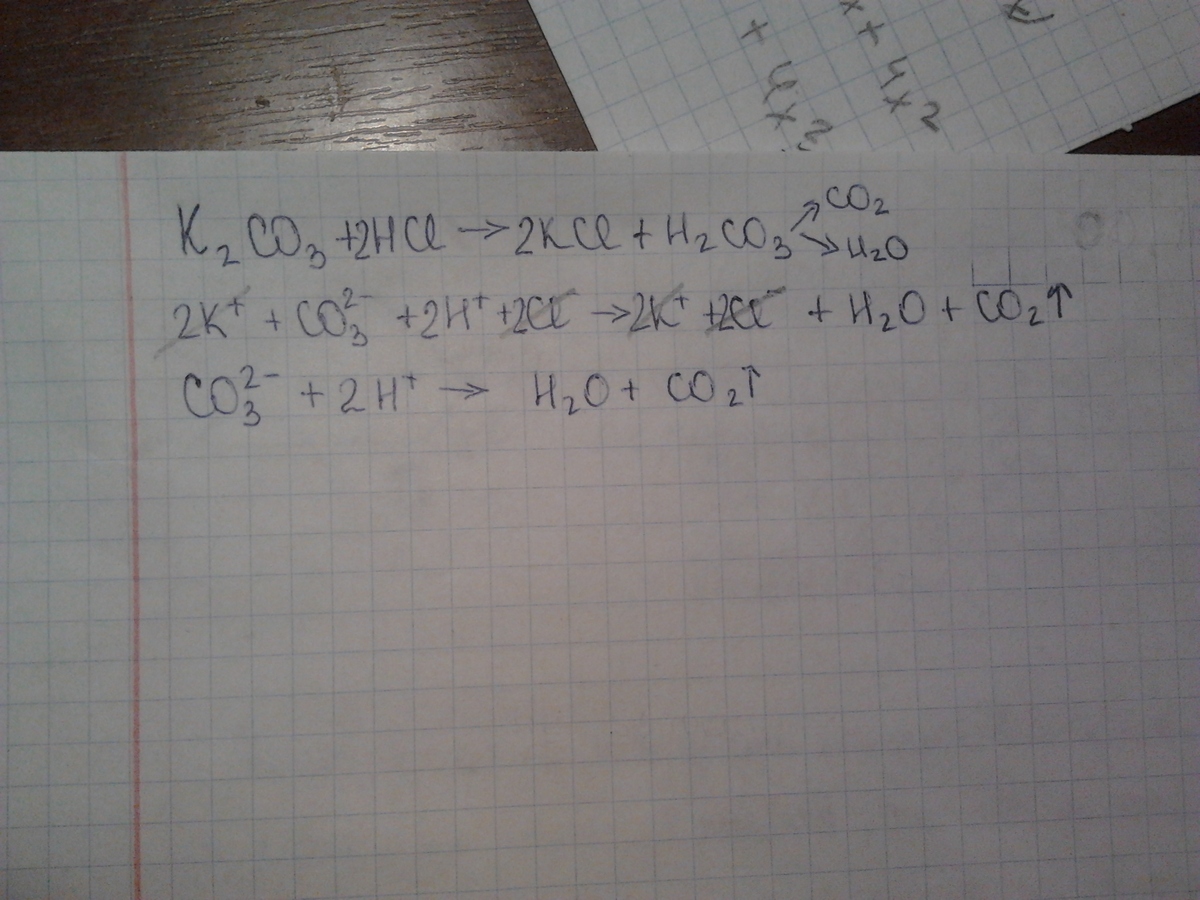 + 4x2
x + 4x2
K₂CO₃ + 2HCl → 2KCl + H₂CO₃ ↗ CO₂ ↘ H₂O
2K⁺ + CO₃²⁻ + 2H⁺ + 2Cl⁻ → 2K⁺ + 2Cl⁻ + H₂O + CO₂↑
CO₃²⁻ + 2H⁺ → H₂O + CO₂↑